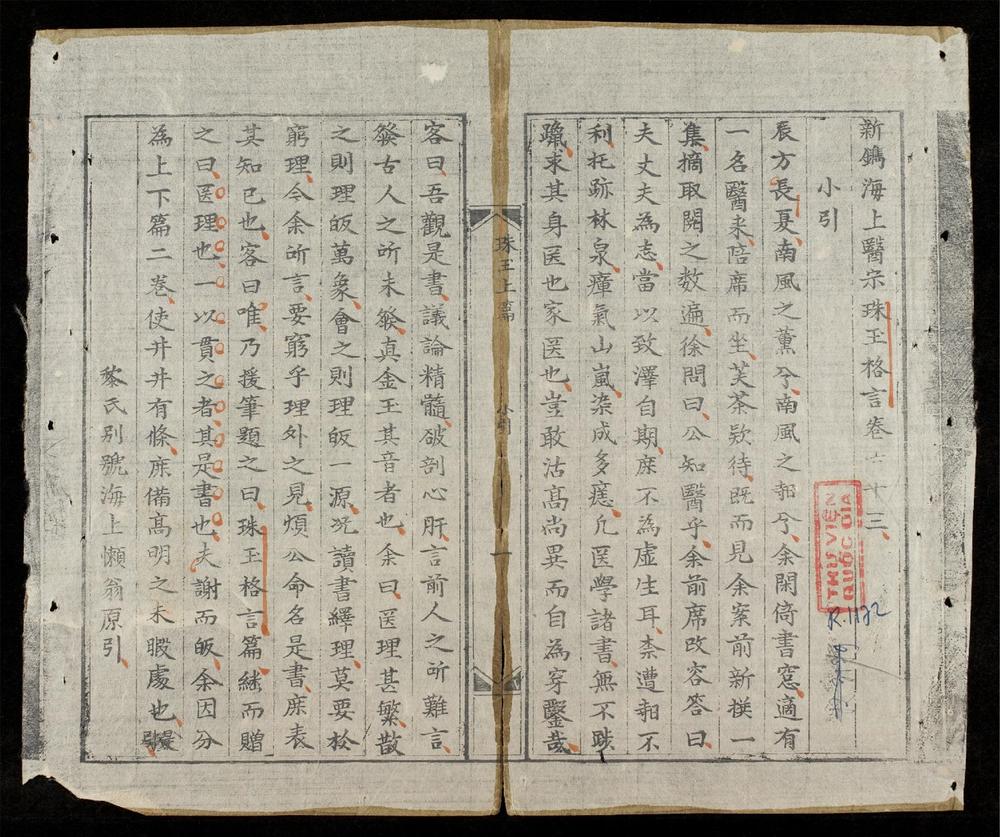 新鐫海上醫宗珠玉格言卷六十三
小引
辰方長夏南風之薰兮南風之時兮余閑倚書窓適有
一名醫来陪席而坐芙茶欵待既而見余案前新撰一
集摘取閱之数遍徐問曰公知醫乎余前席改容答曰
夫丈夫為志當以致澤自期庶不為虛生耳柰遭時不
利托跡林泉瘴氣山嵐染成多恙凢医學諸書無不
躐求其身医也家医也豈敢沽髙尚異而自為穿鑿哉
珠玉上篇
小引
一
客曰吾觀是書議論精髓破剖心肝言前人之所難言
發古人之所未發真金玉其音者也余曰医理甚繁散
之則理皈萬象會之則理皈一源况讀書繹理莫要於
窮理今余所言要窮乎理外之見煩公命名是書庶表
其知已也客曰唯乃援筆題之曰珠玉格言篇継而贈
之曰医理也一以貫之者其是書也夫謝而皈余因分
為上下篇二巻使井井有條庶備髙明之未暇處也
黎氏別號海上懶翁原引
THƯ VIỆN
QUỐC GIA
R.1192